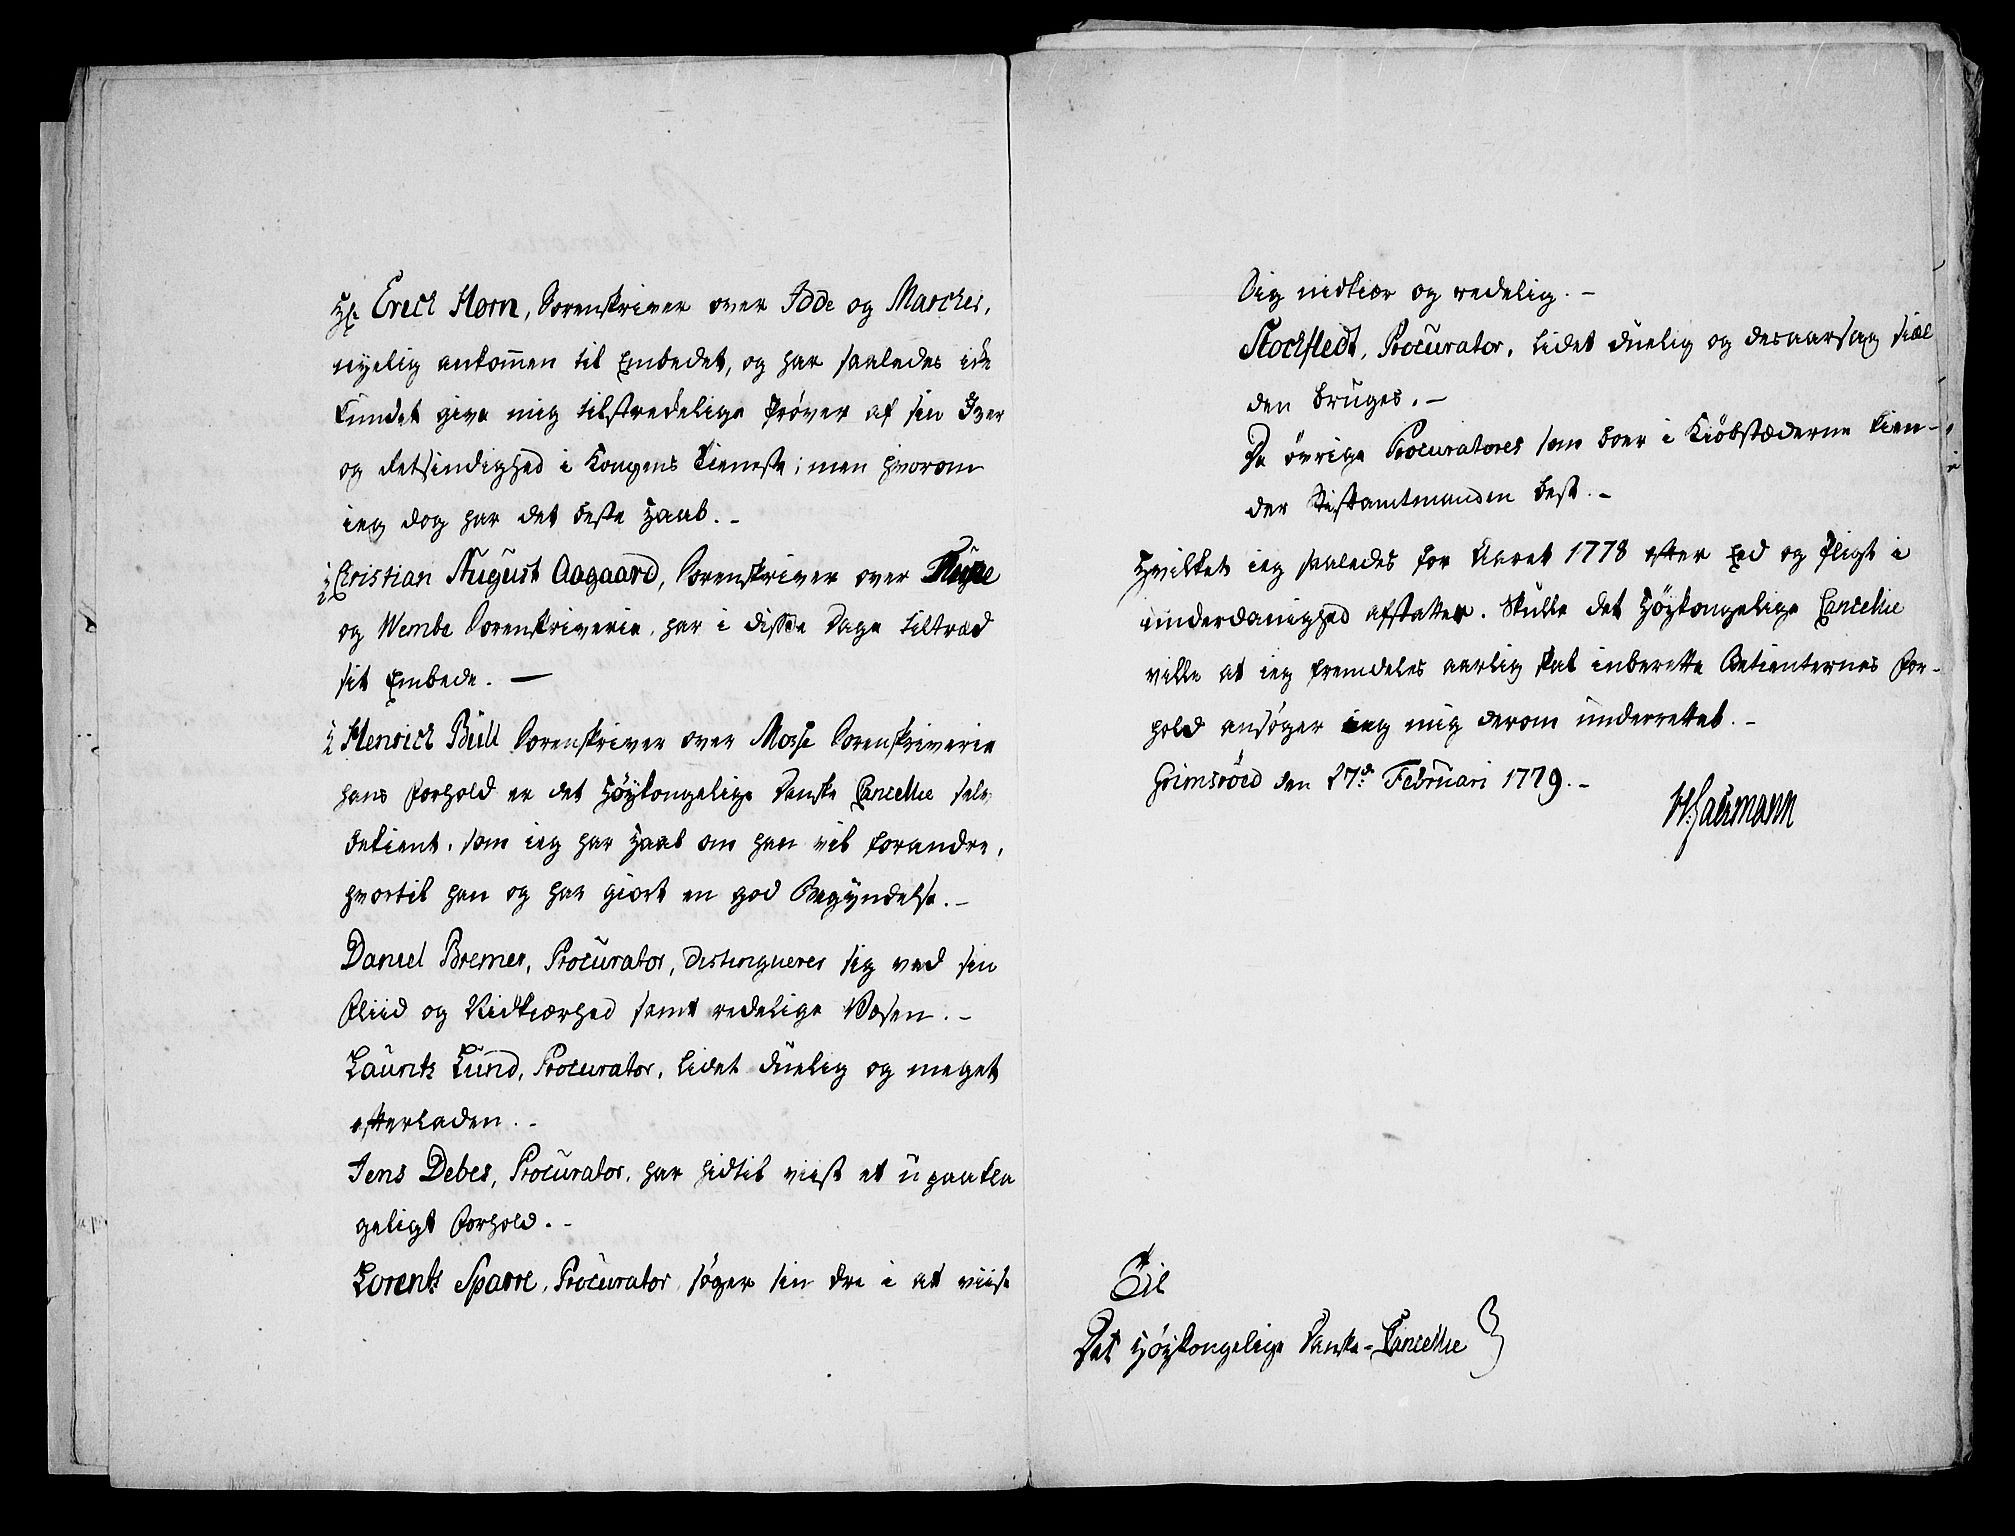 Hr. Erich Horn, Sorenskriver over Idde og Marcher,
nyelig ankommen til Embedet, og har saaledes icke
kundet give mig tilstredelige Prøver af sin Iver
og Retsindighed i Kongens Tieneste; men hvorom
ieg dog har det beste Haab. -
Christian August Aagaard, Sorenskriver over Rygge
og Wembe Sorenskriverie, har i disse Dage tiltræd
sit Embede. —
Henrich Büll Sorenskriver over Mosse Sorenskriverie
hans Forhold er det Höÿkongelige Danske Cancellie selv
bekient, som ieg har Haab om han vil forandre,
hvortil han og har giort en god Begÿndelse. -
Daniel Bremer, Procürator, distingverer sig ved sin
Fliid og Nidkiærhed samt redelige Væsen. -
Lauritz Lünd, Procurator, lidet düelig og meget
efterladen. -
Jens Debes, Procürator, har hidtil viist et üpaakla
geligt Forhold. -
Lorentz Sparre, Procürator søger sin Ære i at viise
Sig nidkiær og redelig. -
Stochfledt, Procürator, lidet düelig og desaarsag siæl
den brüges. -
De övrige Procuratores som boer i Kiöbstæderne kien-
der Stiftamtmanden best. -
Hvilket ieg saaledes for Aaret 1778 efter Eed og Pligt i
ünderdanighed afstatter. Skulle det Höÿkongelige Cancellie
ville at ieg fremdeles aarlig skal inberette Betienternes For-
hold ansøger ieg mig derom ünderrettet. -
Grimsröed den 27de Februari 1779. -
W. Hausmann
Til
Det Höÿkongelige Danske-Cancellie